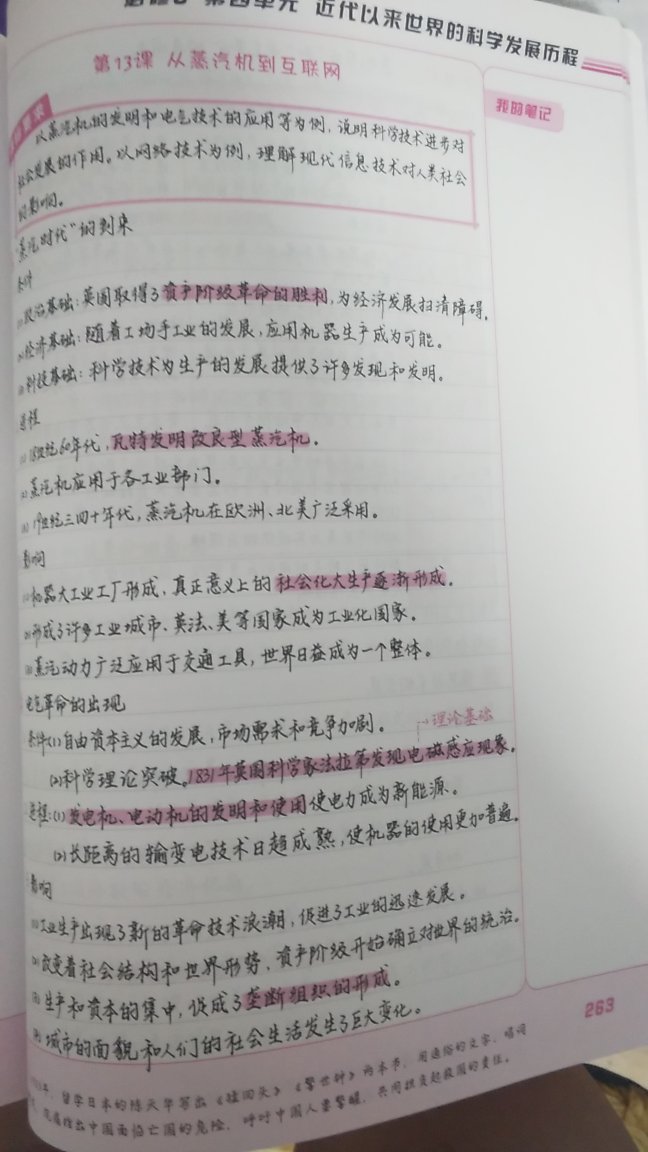 第四单元 近代以来世界的科学发展历程
第13课 从蒸汽机到互联网
我的笔记
以蒸汽机的发明和电气技术的应用等为例，说明科学技术进步对
社会发展的作用。以网络技术为例，理解现代信息技术对人类社会
的影响。
“蒸汽时代”的到来
条件
(1)政治基础：英国取得了资产阶级革命的胜利，为经济发展扫清障碍。
(2)经济基础：随着工场手工业的发展，应用机器生产成为可能。
(3)科技基础：科学技术为生产的发展提供了许多发现和发明。
进程
(1)18世纪60年代，瓦特发明改良型蒸汽机。
(2)蒸汽机应用于各工业部门。
(3)19世纪三四十年代，蒸汽机在欧洲、北美广泛采用。
影响
(1)机器大工业工厂形成，真正意义上的社会化大生产逐渐形成。
(2)形成了许多工业城市、英法、美等国家成为工业化国家。
(3)蒸汽动力广泛应用于交通工具，世界日益成为一个整体。
电气革命的出现
条件：(1)自由资本主义的发展，市场需求和竞争加剧。
理论基础
(2)科学理论突破。1831年英国科学家法拉第发现电磁感应现象。
进程：(1)发电机、电动机的发明和使用使电力成为新能源。
(2)长距离的输变电技术日趋成熟，使机器的使用更加普遍。
影响
(1)工业生产出现了新的革命技术浪潮，促进了工业的迅速发展。
(2)改变着社会结构和世界形势，资产阶级开始确立对世界的统治。
(3)生产和资本的集中，促成了垄断组织的形成。
(4)城市的面貌和人们的社会生活发生了巨大变化。
263
年，留学日本的陈天华写出《猛回头》《警世钟》两本书，用通俗的文字，唱词
指出中国面临亡国的危险，呼吁中国人要警醒，共同担负起救国的责任。